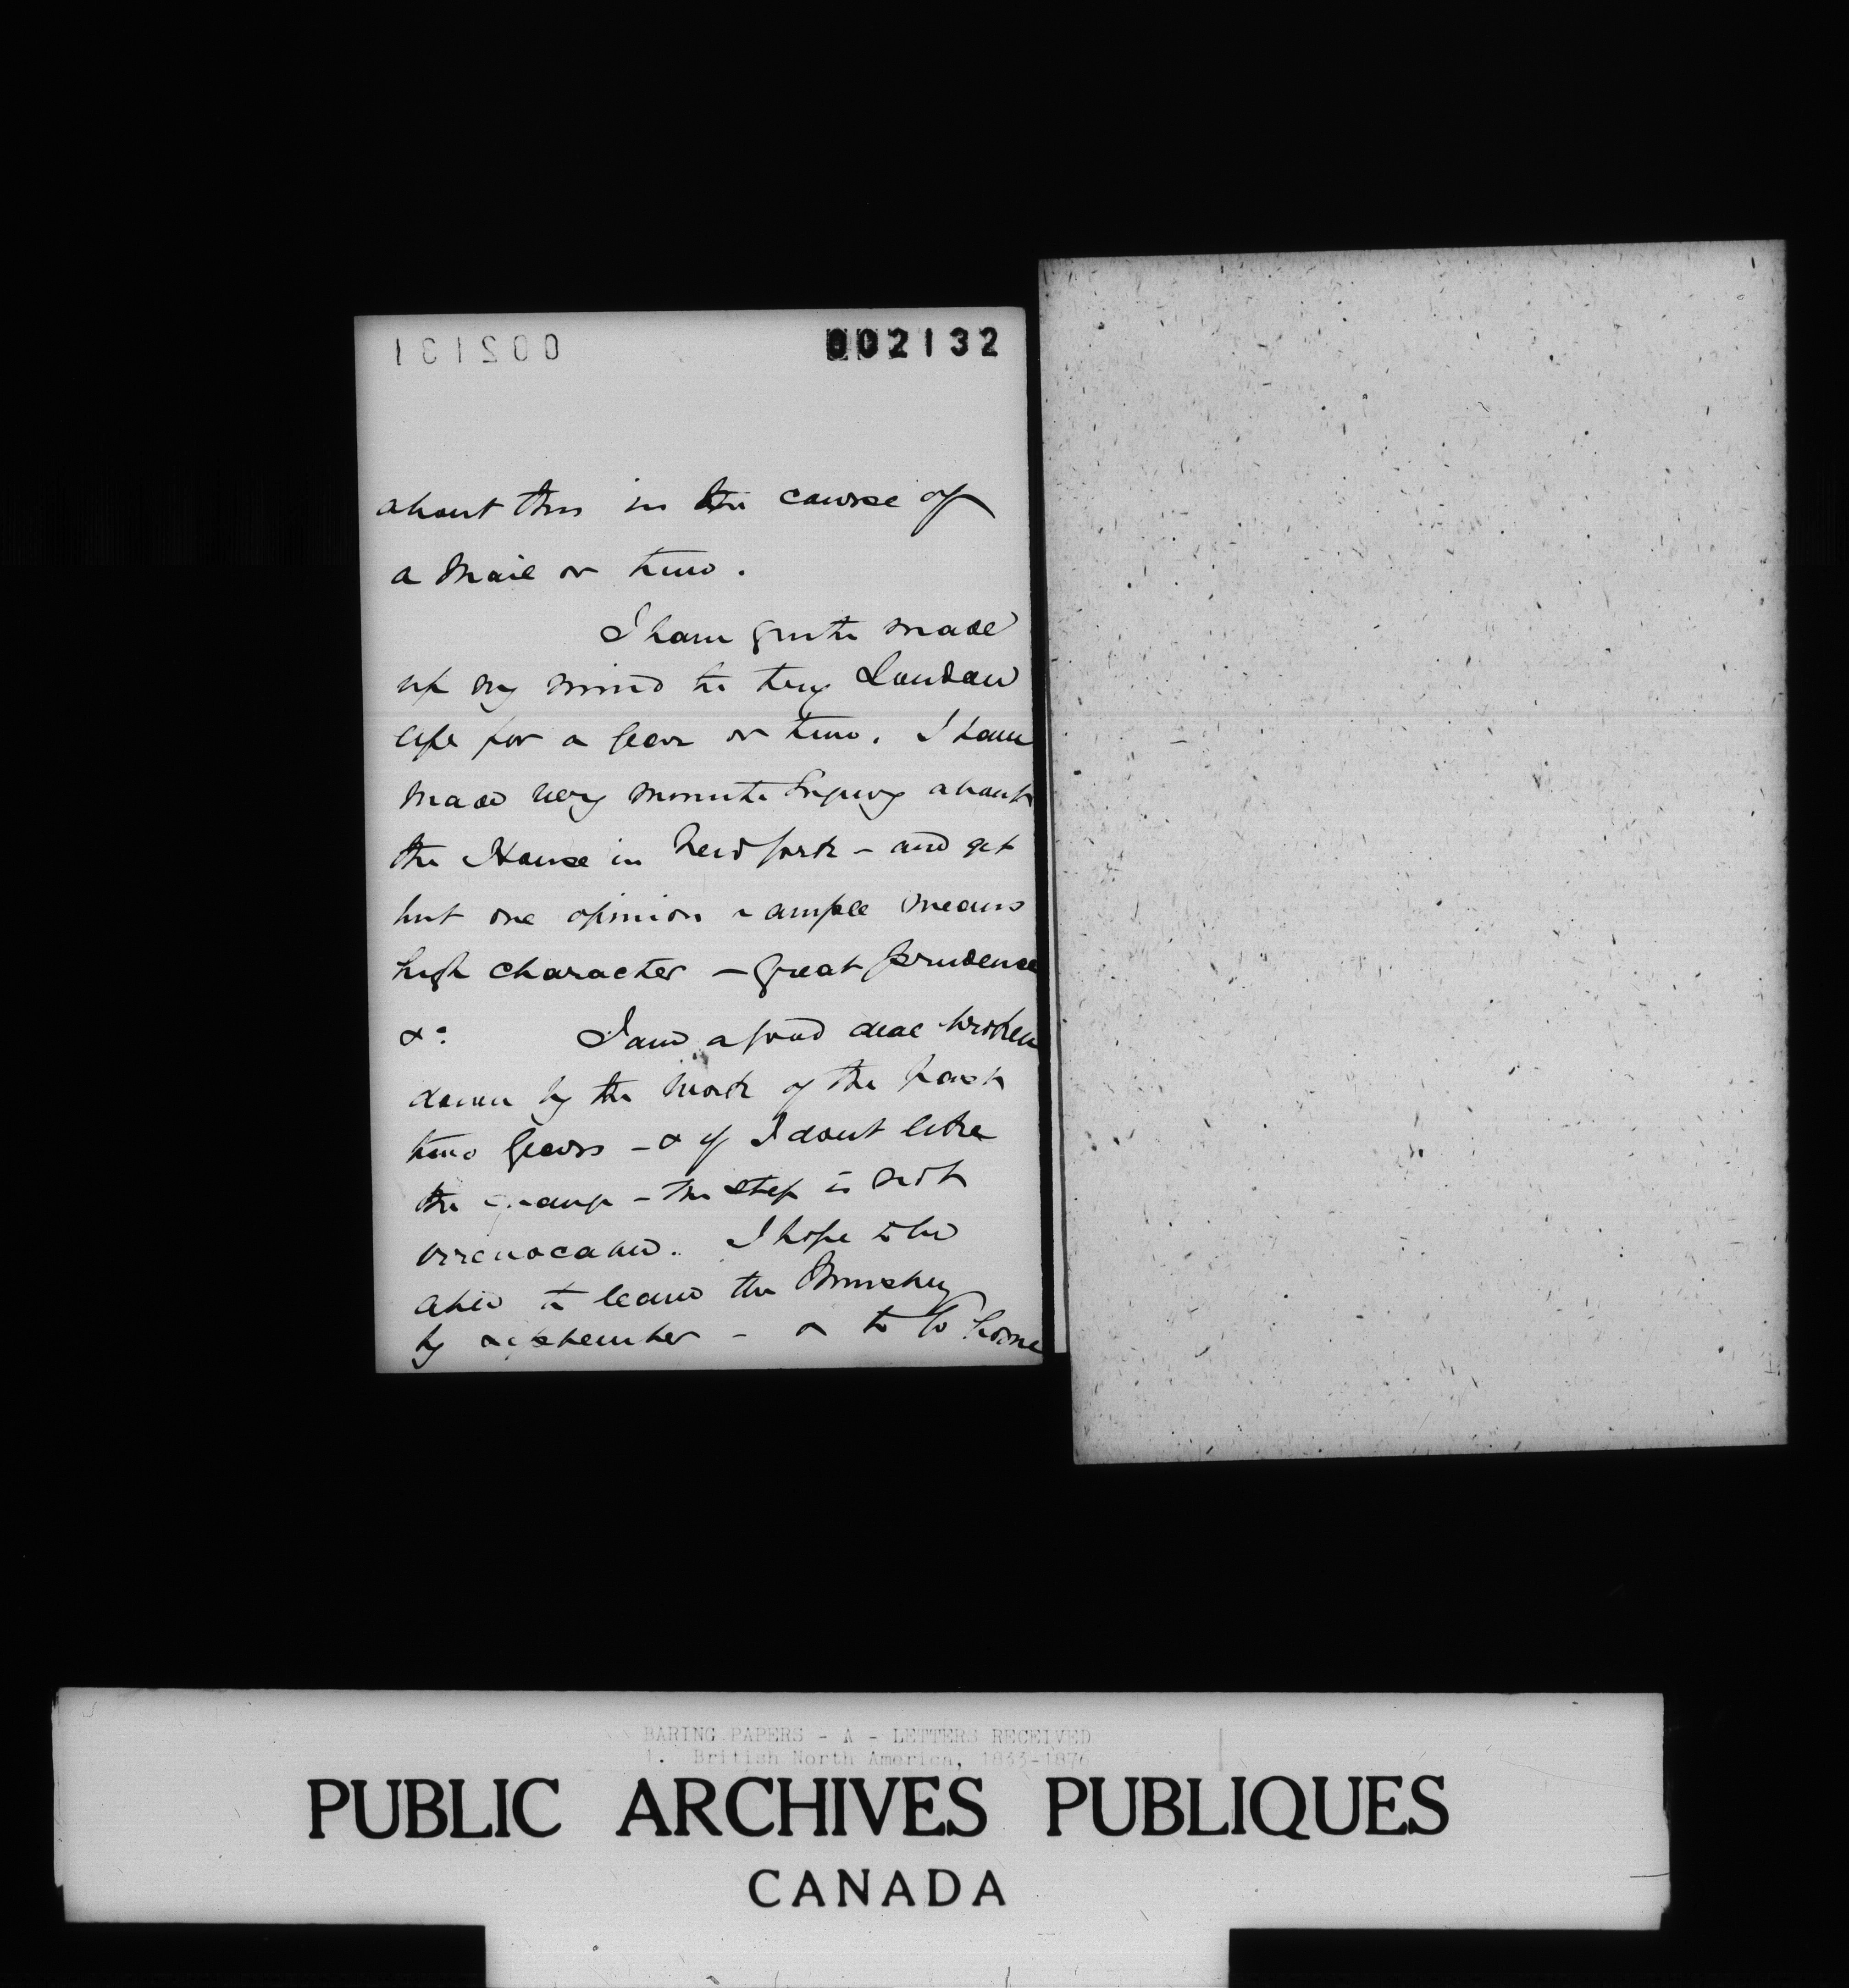 002131
002132
about this in the course of
a Mail or two.
I have quite made
up my mind to try London
life for a year or two. I have
made very minute Inquiry about
the House in New York - and get
but one opinion - ample means
high character - great prudence
&c I am a good deal broken
down by the work of the past
two years - & if I dont like
the change - the step is not
irrevocable. I hope to be
able to leave the Ministry
by September - or to go home
BARING PAPERS - A - LETTERS RECEIVED
1. British North America, 1833-1876
PUBLIC ARCHIVES PUBLIQUES
CANADA